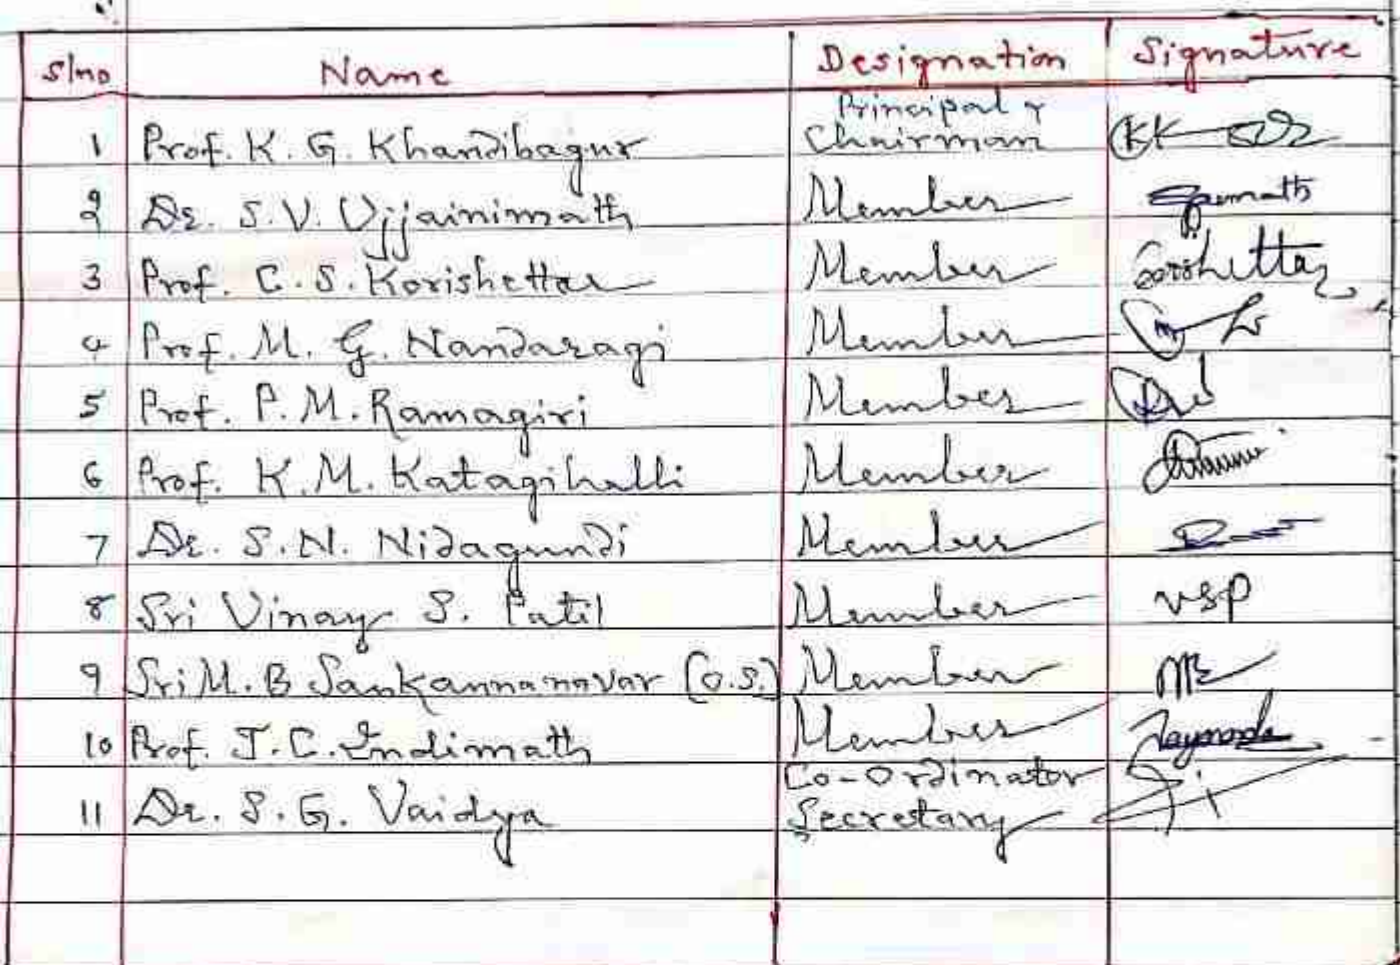 S/no Name Designation Signature
1 Prof. K. G. Khandibagur Principal & Chairman
2 Dr. S. V. Ujjainimath Member
3 Prof. C. S. Korishettar Member Korishettar
4 Prof. M. G. Nandaragi Member
5 Prof. P. M. Ramagiri Member
6 Prof. K. M. Katagihalli Member
7 Dr. S. N. Nidagundi Member
8 Sri Vinay S. Patil Member VSP
9 Sri M. B Sankannanavar (O.S.) Member
10 Prof. J. C. Indimath Member
11 Dr. S. G. Vaidya Co-Ordinator Secretary